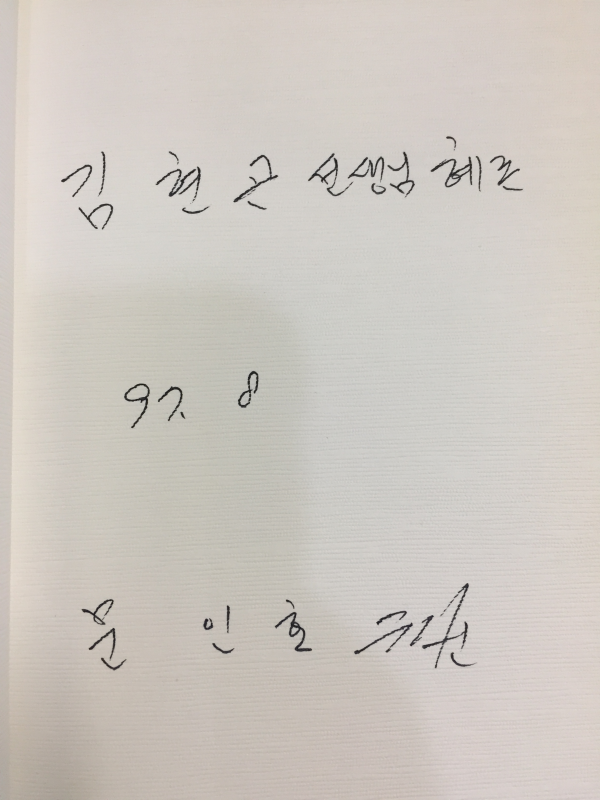 김 현 곤 선생님 혜존
97. 8
인 호